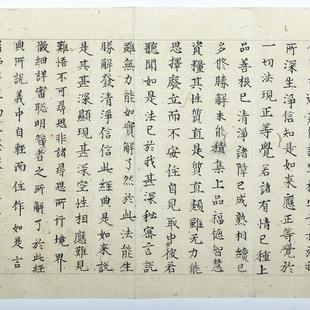 所深生淨信知是如來應正等覺於
一切法現正等覺若諸有情已種上
品善根已清淨諸障已成熟相續已
多修勝解未能積集上品福德智慧
資糧其性質直是質直類雖無力能
思擇廢立而不安住自見取中彼若
聽聞如是法已於我甚深秘密言說
雖無力能如實解了然於此法能生
勝解發清淨信信此經典是如來說
是其甚深顯現甚深空性相應難見
難悟不可尋思非諸尋思所行境界
微細詳審聰明智者之所解了於此經
典所說義中自輕而住作如是言